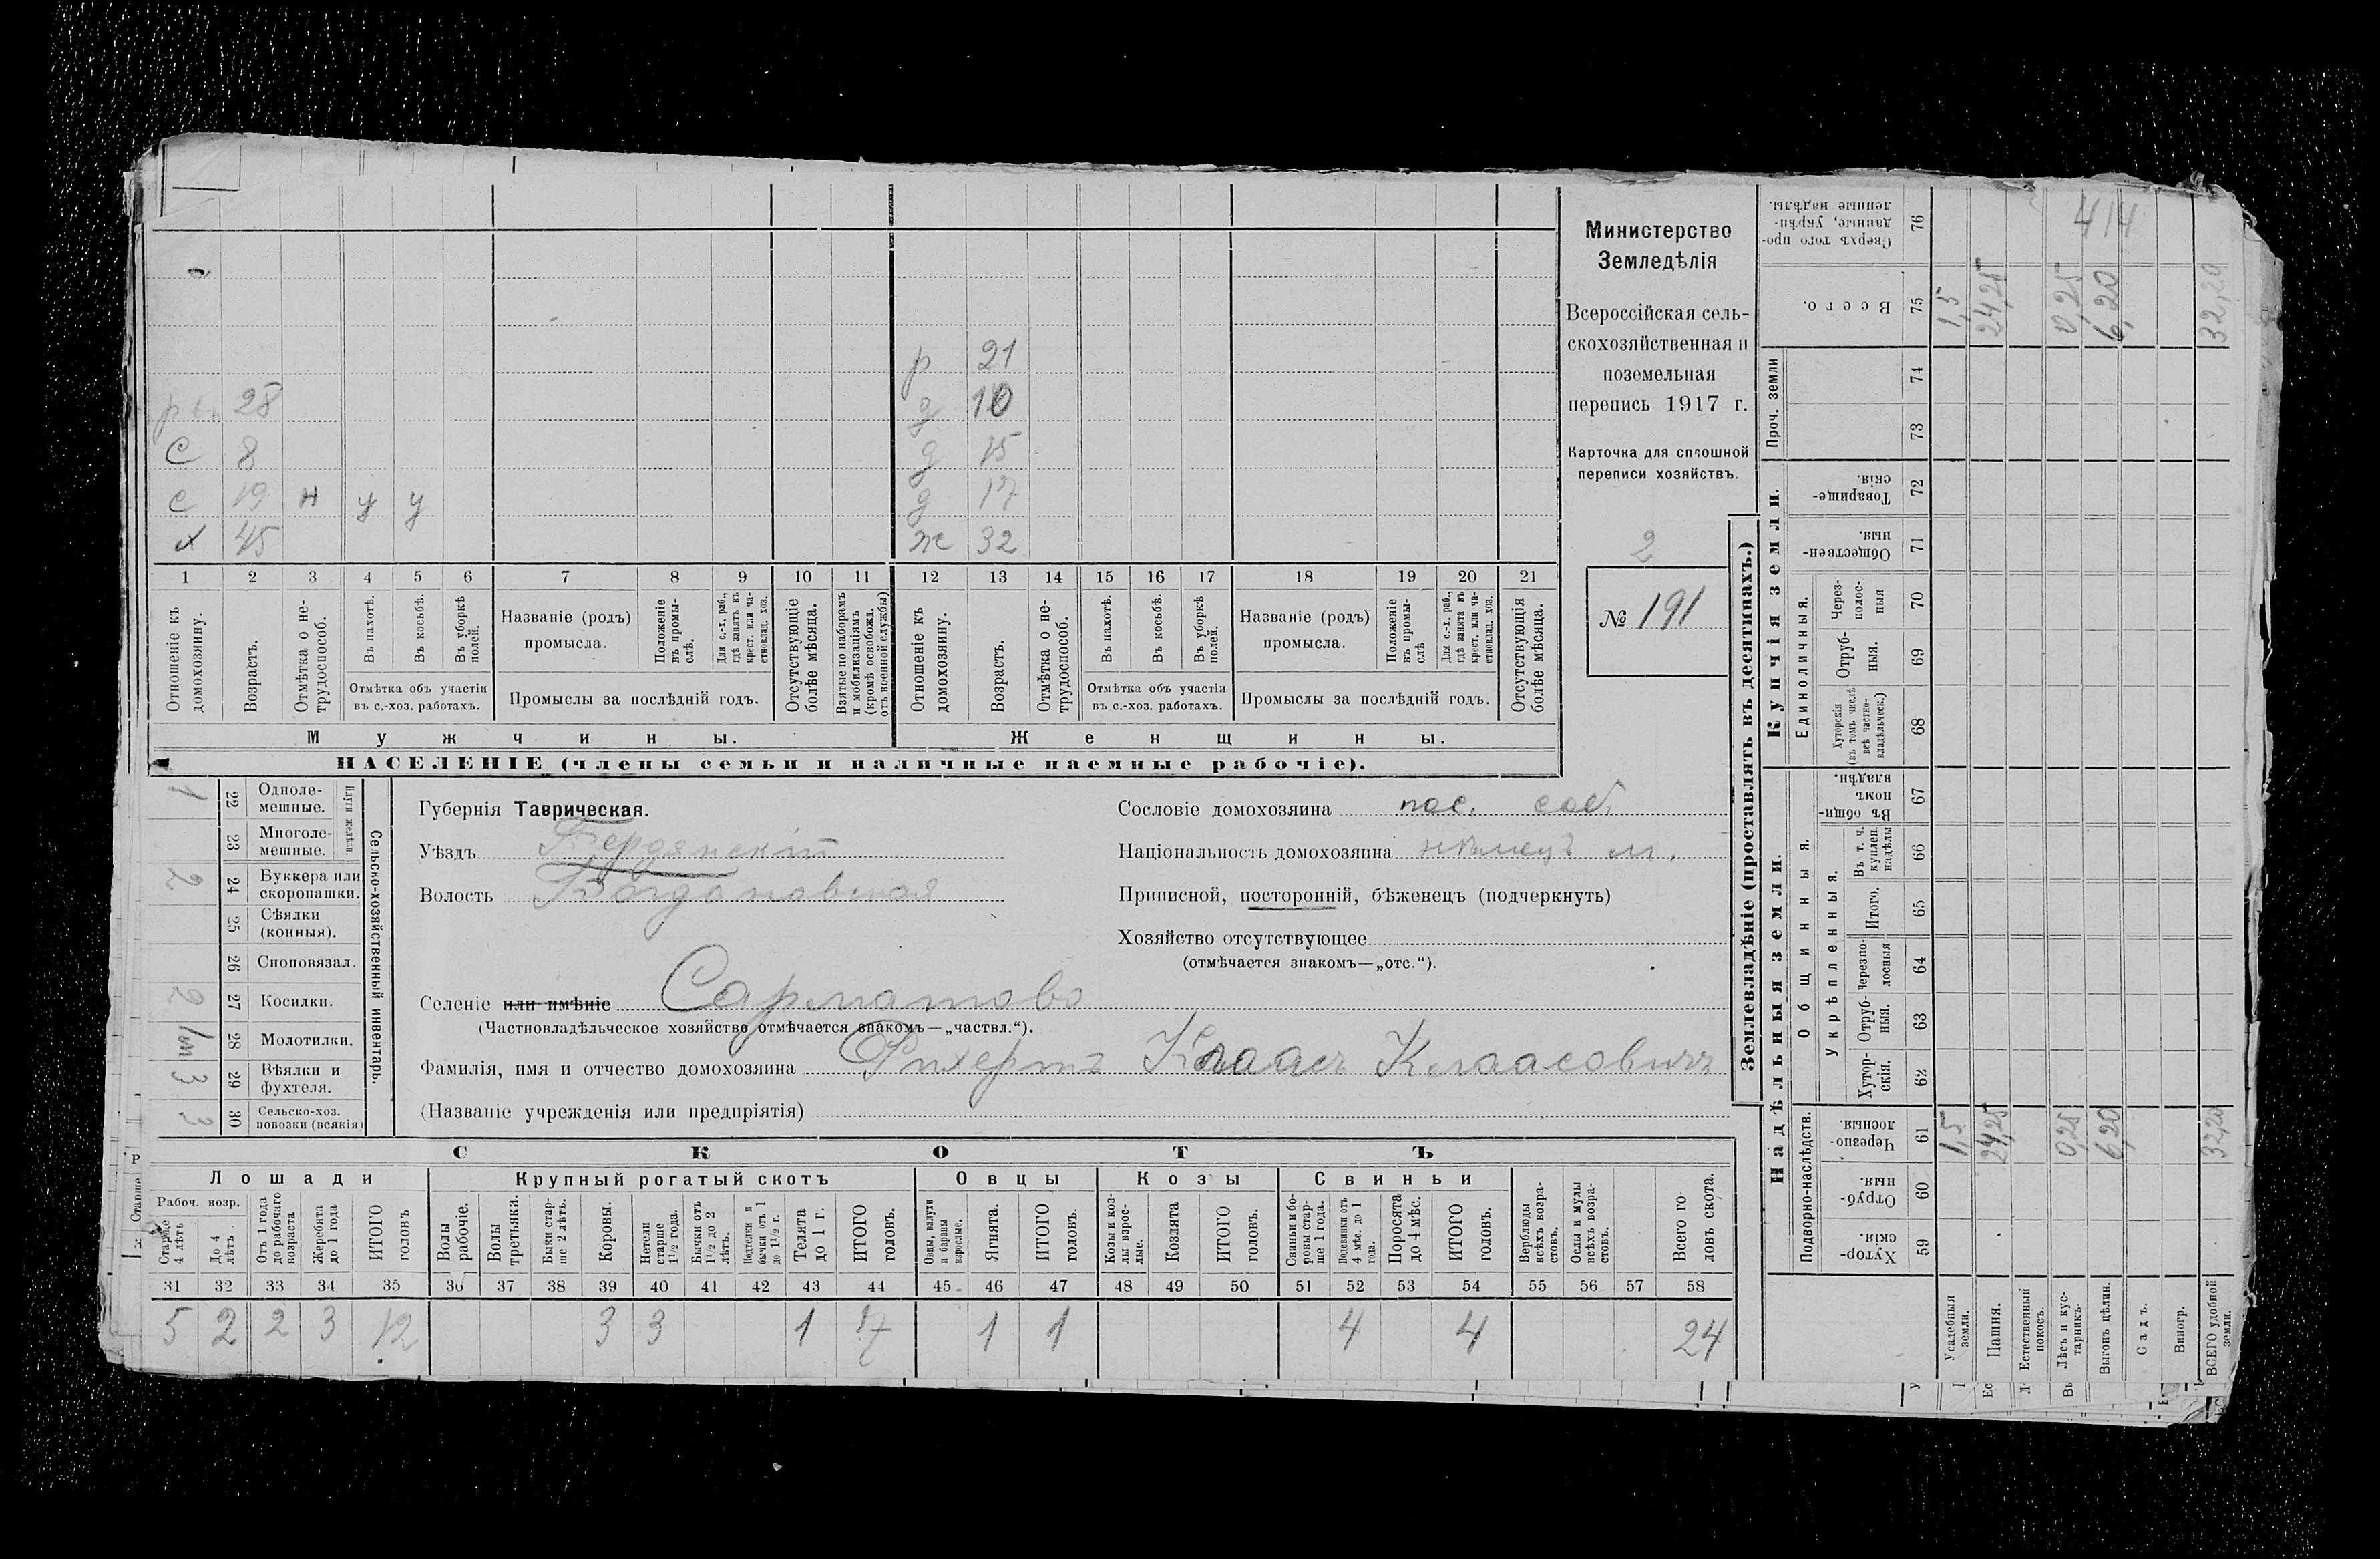 Министерство
Земледѣлія
Всероссійская сель-
скохозяйственная и
поземельная
перепись 1917 г.
Карточка для сплошной
переписи хозяйствъ.
2
№ 191
р 21
р 28 д 10
с 8 д 15
с 19 н у у д 17
х 45 ж 32
1 2 3 4 5 6 7 8 9 10 11 12 13 14 15 16 17 18 19 20 21
Отношеніе къ домохозяину.
Возрастъ.
Отмѣтка о не-трудоспособ.
Въ пахотѣ.
Въ косьбѣ.
Въ уборкѣ полей.
Отмѣтка объ участіи
въ с.-хоз. работахъ.
Названіе (родъ)
промысла.
Положеніе въ промы-слѣ.
Для с.-х. раб., гдѣ занятъ въ крест. или ча-стновлад. хоз.
Промыслы за послѣдній годъ.
Отсутствующіе болѣе мѣсяца.
Взятые по наборамъ и мобилизаціямъ (кромѣ освобожд. отъ военной службы)
Отношеніе къ домохозяину.
Возрастъ.
Отмѣтка о не-трудоспособ.
Въ пахотѣ.
Въ косьбѣ.
Въ уборкѣ полей.
Отмѣтка объ участіи
въ с.-хоз. работахъ.
Названіе (родъ)
промысла.
Положеніе въ промы-слѣ
Для с.-х. раб., гдѣ занята въ крест. или ча-стновлад. хоз.
Промыслы за послѣдній годъ.
Отсутствующія болѣе мѣсяца.
Мужчины. Женщины.
НАСЕЛЕНІЕ (члены семьи и наличные наемные рабочіе).
Сельско-хозяйственный инвентарь.
Плуги желѣзн.
1 22 Одноле-мешные.
23 Многоле-мешные.
2 24 Буккера или скоропашки.
25 Сѣялки (конныя).
26 Сноповязал.
2 27 Косилки.
28 Молотилки.
3 29 Вѣялки и фухтеля.
3 30 Сельско-хоз. повозки (всякія)
Губернія Таврическая.
Уѣздъ Бердянскій
Волость Богдановская
Сословіе домохозяина пос. соб.
Національность домохозяина нѣмецъ м.
Приписной, посторонній, бѣженецъ (подчеркнуть)
Хозяйство отсутствующее
(отмѣчается знакомъ—„отс.“).
Селеніе или имѣніе Сарматово
(Частновладѣльческое хозяйство отмѣчается знакомъ—„частвл.“).
Фамилія, имя и отчество домохозяина Рихертъ Клаасъ Клаасовичъ
(Названіе учрежденія или предпріятія)
СКОТЪ
Лошади Крупный рогатый скотъ Овцы Козы Свиньи
Рабоч. возр.
Старше 4 лѣтъ
До 4 лѣтъ
Отъ 1 года до рабочаго возраста
Жеребята до 1 года
ИТОГО головъ
Волы рабочіе.
Волы третьяки.
Быки стар-ше 2 лѣтъ.
Коровы.
Нетели старше 1½ года.
Бычки отъ 1½ до 2 лѣтъ.
Подтелки и бычки отъ 1 до 1½ г.
Телята до 1 г.
ИТОГО головъ.
Овцы, валухи и бараны взрослые.
Ягнята.
ИТОГО головъ.
Козы и коз-лы взрос-лые.
Козлята
ИТОГО головъ.
Свиньи и бо-ровы стар-ше 1 года.
Подсвинки отъ 4 мѣс. до 1 года.
Поросята до 4 мѣс.
ИТОГО головъ.
Верблюды всѣхъ возра-стовъ.
Ослы и мулы всѣхъ возра-стовъ.
Всего го-ловъ скота.
31 32 33 34 35 36 37 38 39 40 41 42 43 44 45 46 47 48 49 50 51 52 53 54 55 56 57 58
5 2 2 3 12 3 3 1 7 1 1 4 4 24
Землевладѣніе (проставлять въ десятинахъ.)
Надѣльныя земли.
Купчія земли.
Проч. земли
Подворно-наслѣдств.
Общинныя.
Укрѣпленныя.
Единоличныя.
Хутор-скія. 59
Отруб-ныя. 60
Черезпо-лосныя. 61
Хутор-скія. 62
Отруб-ныя. 63
Черезпо-лосныя 64
Итого. 65
Въ т. ч. куплен. надѣлы 66
Въ общи-номъ владѣн. 67
Хуторскія (въ томъ числѣ всѣ частно-владѣльческ.) 68
Отруб-ныя. 69
Через-полос-ныя 70
Обществен-ныя. 71
Товарище-скія. 72
73
74
Всего. 75
Сверхъ того про-данные, укрѣп-ленные надѣлы. 76
Усадебныя земли. 1,5 1,5
Пашня. 24,25 24,25
Естественный покосъ.
Лѣсъ и кус-тарникъ. 0,25 0,25
Выгонъ цѣлин. 6,20 6,20
Садъ.
Виногр.
ВСЕГО удобной земли. 32,20 32,20
414